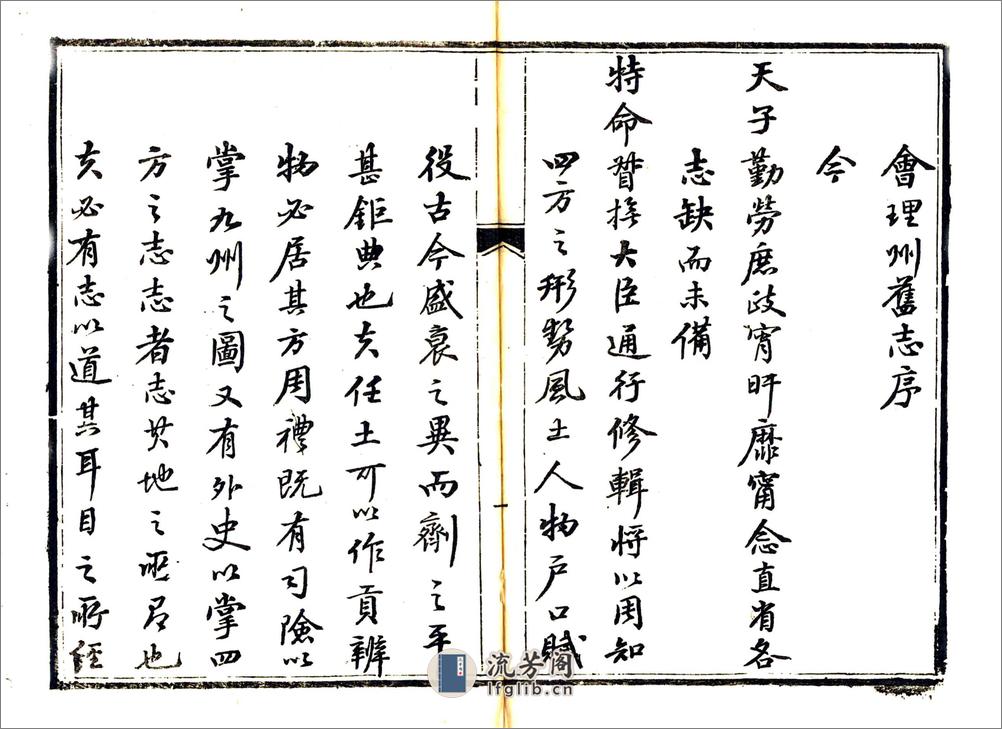 會理州舊志序
今
天子勤勞庶政宵旰靡甯念直省各
志缺而未備
特命督撫大臣通行修輯將以周知
四方之形勢風土人物戶口賦
役古今盛衰之異而劑之平
甚鉅典也夫任土可以作貢辨
物必居其方周禮既有司險以
掌九州之圖又有外史以掌四
方之志志者志其地之所也
夫必有志以道其耳目之所經
流芳阁
lfglib.cn